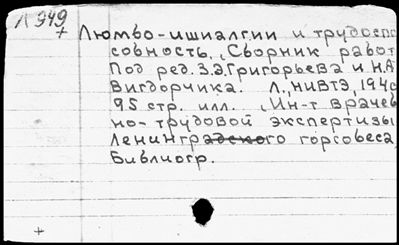 Л 949
+
Люмбо-ишиалгии и трудосп
собность. Сборник работ
Под ред. З.Э.Григорьева и Н.А
Вигдорчика. Л., НИВТЭ, 194
95 стр. илл. (Ин-т врачеб
но-трудовой экспертизы
Ленинградского горсовета
Библиогр.
+